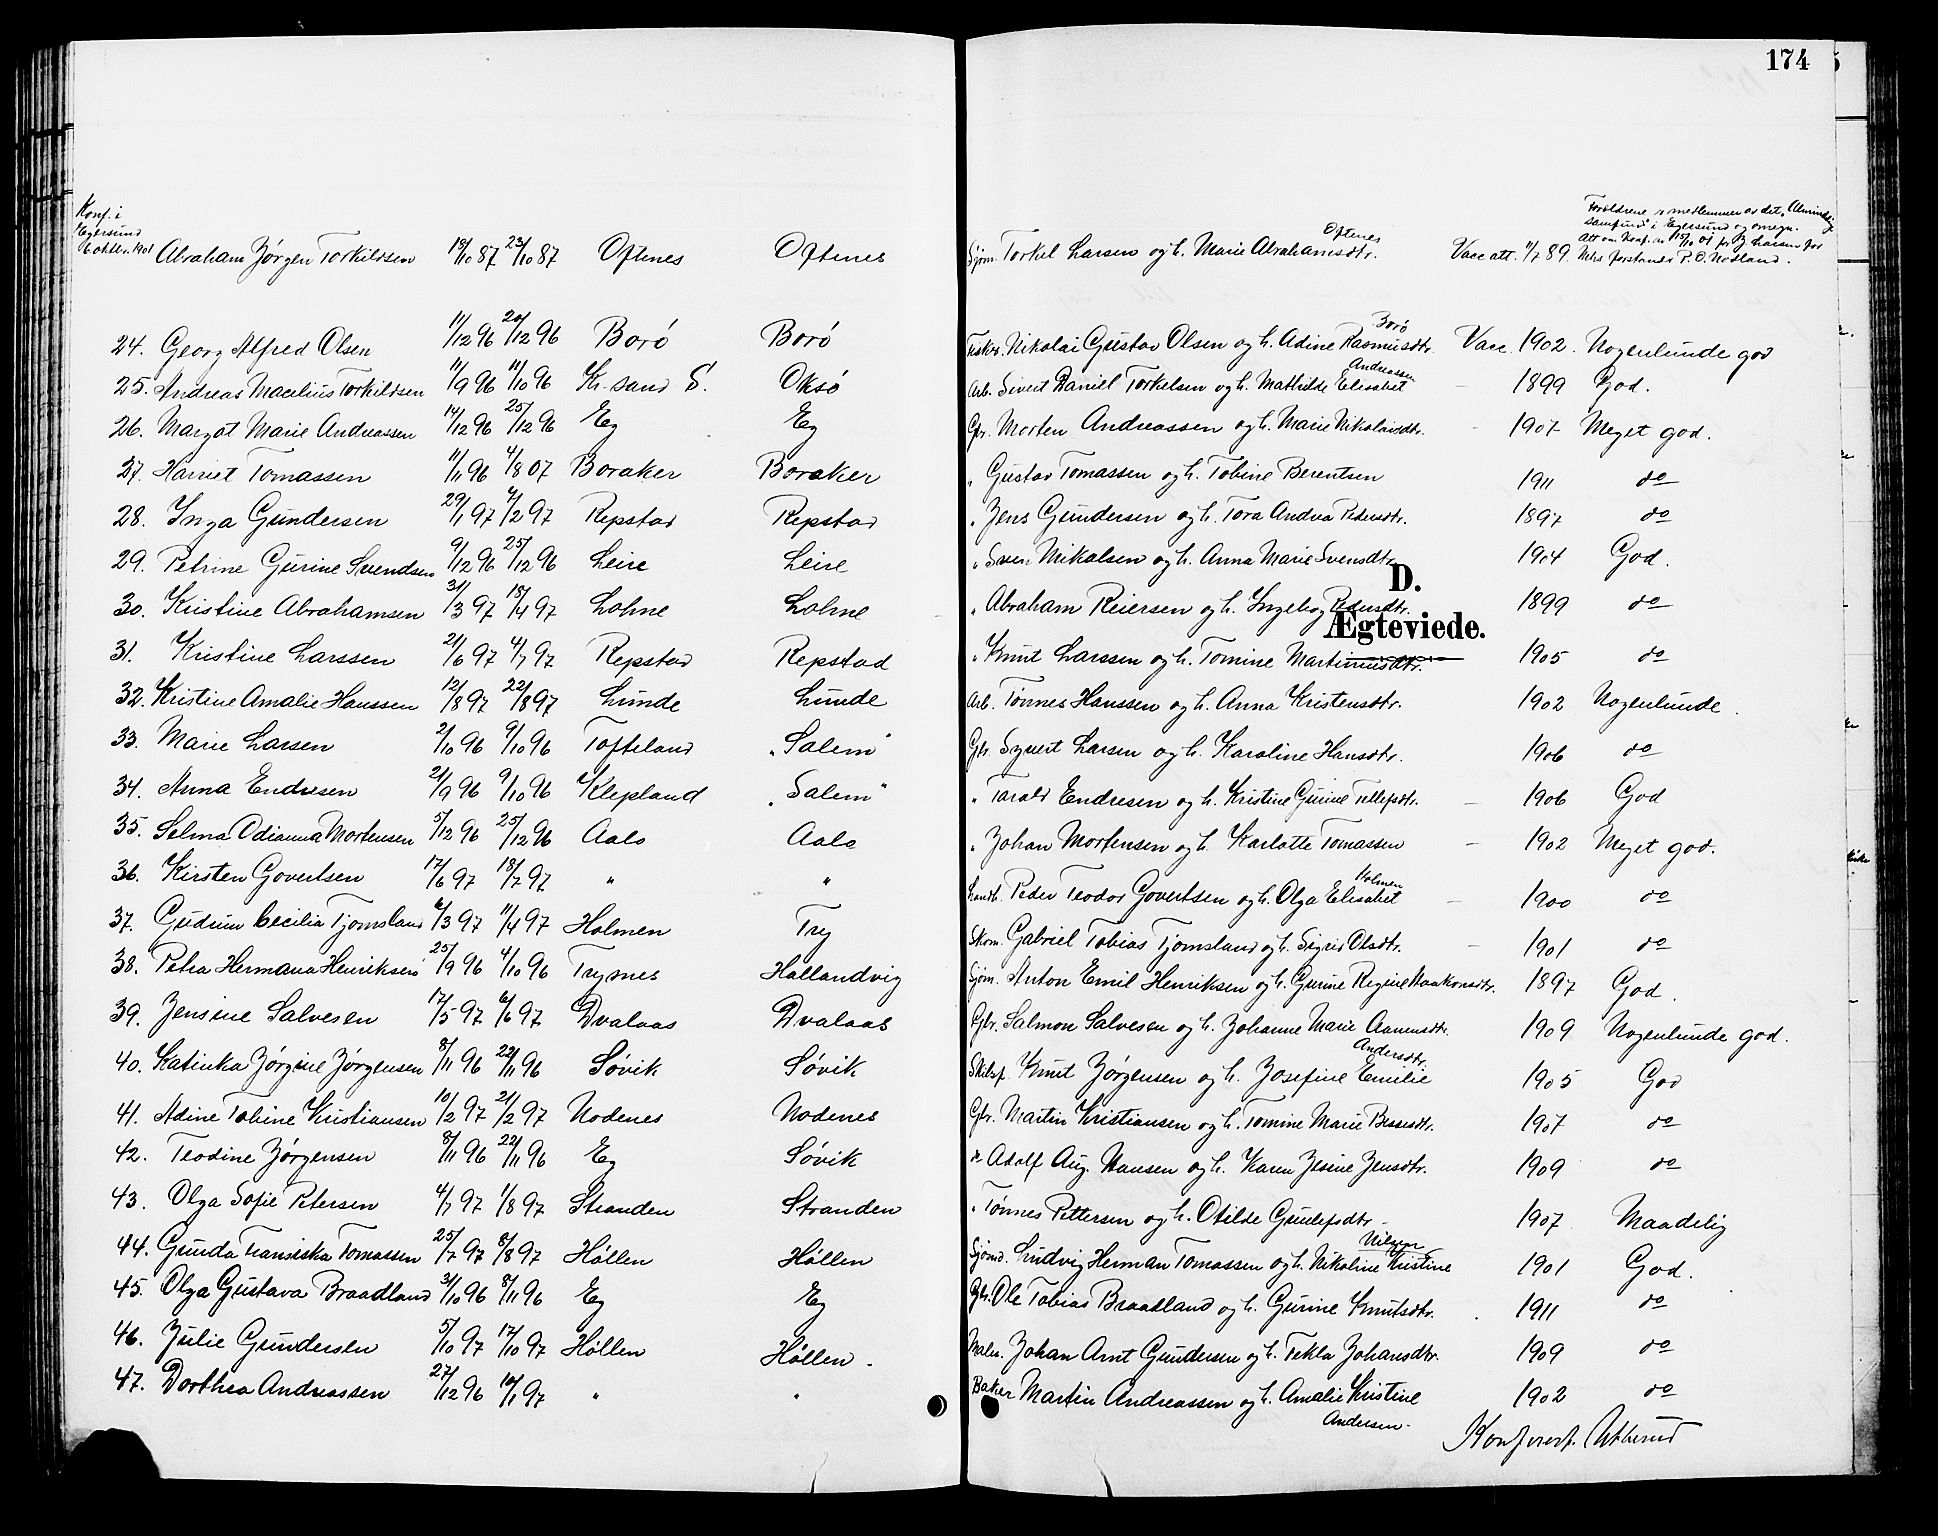 174
Konf. i
Egersund
6 oktbr. 1901 Abraham Jörgen Torkildsen 18/10 87 23/10 87 Oftenes Oftenes Sjöm. Torkel Larsen og h. Marie Abrahamsdtr. Oftenes Vacc att. 11/7 89. Forældrene er medlemmer av det "Almindelig
samfund" i Egersund og omegn.
Att om Konf. 15/10 01 fr. J. Larsen for
P. O. Nodland.
24. Georg Alfred Olsen 11/12 96 20/12 96 Borö Borö Fisker. Nikolai Gustav Olsen og h. Adine Rasmusdtr. Borö Vacc. 1902. Nogenlunde god
25. Andreas Macelius Torkildsen 11/9 96 11/10 96 Kr.sand S. Oksö Arb. Sivert Daniel Torkelsen og h. Mathilde Elisabet Andreassen 1899 God.
26. Margot Marie Andreassen 14/12 96 25/12 96 Eg Eg Gbr. Morten Andreassen og h. Marie Nikolaisdtr. 1907 Meget god.
27. Harriet Tomassen 11/11 96 4/8 07 Boraker Boraker " Gustav Tomassen og h. Tobine Berentsen 1911 do
28. Inga Gundersen 29/1 97 7/2 97 Repstad Repstad " Jens Gundersen og h. Tora Andrea Pedersdtr. 1897 do
29. Petrine Gurine Svendsen 9/12 96 25/12 96 Leire Leire " Sven Nikalsen og h. Anna Marie Svensdtr. 1904 God.
D.
30. Kristine Abrahamsen 31/3 97 18/4 97 Lohne Lohne " Abraham Reiersen og h. Ingeborg Pedersdtr. 1899 do
Ægteviede.
31. Kristine Larssen 21/6 97 4/7 97 Repstad Repstad " Knut Larssen og h. Tomine Martinusdtr. 1905 do
32. Kristine Amalie Hanssen 12/8 97 22/8 97 Lunde Lunde Arb. Tönnes Hanssen og h. Anna Kristensdtr. 1902 Nogenlunde.
33. Marie Larsen 2/10 96 9/10 96 Tofteland "Salem" Gbr. Syvert Larsen og h. Karoline Hansdtr. 1906 do
34. Anna Endresen 21/9 96 9/10 96 Klepland "Salem" " Tarald Endresen og h. Kristine Gurine Tellefsdtr. 1906 God
35. Selma Odianna Mortensen 5/12 96 25/12 96 Aalo Aalo " Johan Mortensen og h. Karlotte Tomassen 1902 Meget god.
36. Kirsten Govertsen 17/6 97 18/7 97 " " Peder Teodor Govertsen og h. Olga Elisabet Holmen 1900 do
37. Gudrun Cecilia Tjomsland 6/3 97 11/4 97 Holmen Try Skom. Gabriel Tobias Tjomsland og h. Sigrid Olsdtr. 1901 do
38. Petra Hermana Henriksen 25/9 96 4/10 96 Trysnes Hallandvig Sjöm. Anton Emil Henriksen og h. Gurine Regine Haakonsdtr. 1897 God.
39. Jensine Salvesen 17/5 97 6/6 97 Dvalaas Dvalaas Gbr. Salmon Salvesen og h. Johanne Marie Aanensdtr. 1909 Nogenlunde god.
40. Katinka Jörgine Jörgensen 8/11 96 22/11 96 Sövik Sövik Skibsf. Knut Jörgensen og h. Josefine Emilie Andersdtr. 1905 God
41. Adine Tobine Kristiansen 10/2 97 21/2 97 Nodenes Nodenes Gbr. Martin Kristiansen og h. Tomine Marie Bessesdtr. 1907 do
42. Teodine Jörgensen 8/11 96 22/11 96 Eg Sövik Adolf Aug. Hansen og h. Karen Jesine Jensdtr. 1909 do
43. Olga Sofie Petersen 4/7 97 1/8 97 Stranden Stranden " Tönnes Pettersen og h. Otilde Gunlefsdtr. 1907 Maadelig
44. Gunda Fransiska Tomassen 25/7 97 8/8 97 Höllen Höllen Sjömd. Ludvig Herman Tomassen og h. Nikoline Kristine Nilsen 1901 God.
45. Olga Gustava Braadland 31/10 96 8/11 96 Eg Eg Gbr. Ole Tobias Braadland og h. Gurine Knutsdtr. 1911 do
46. Julie Gundersen 5/10 97 17/10 97 Höllen Höllen. Maler. Johan Arnt Gundersen og h. Tekla Johansdtr. 1909 do
47. Dorthea Andreassen 27/12 96 10/1 97 " " Baker Martin Andreassen og h. Amalie Kristine Andersen. 1902 do